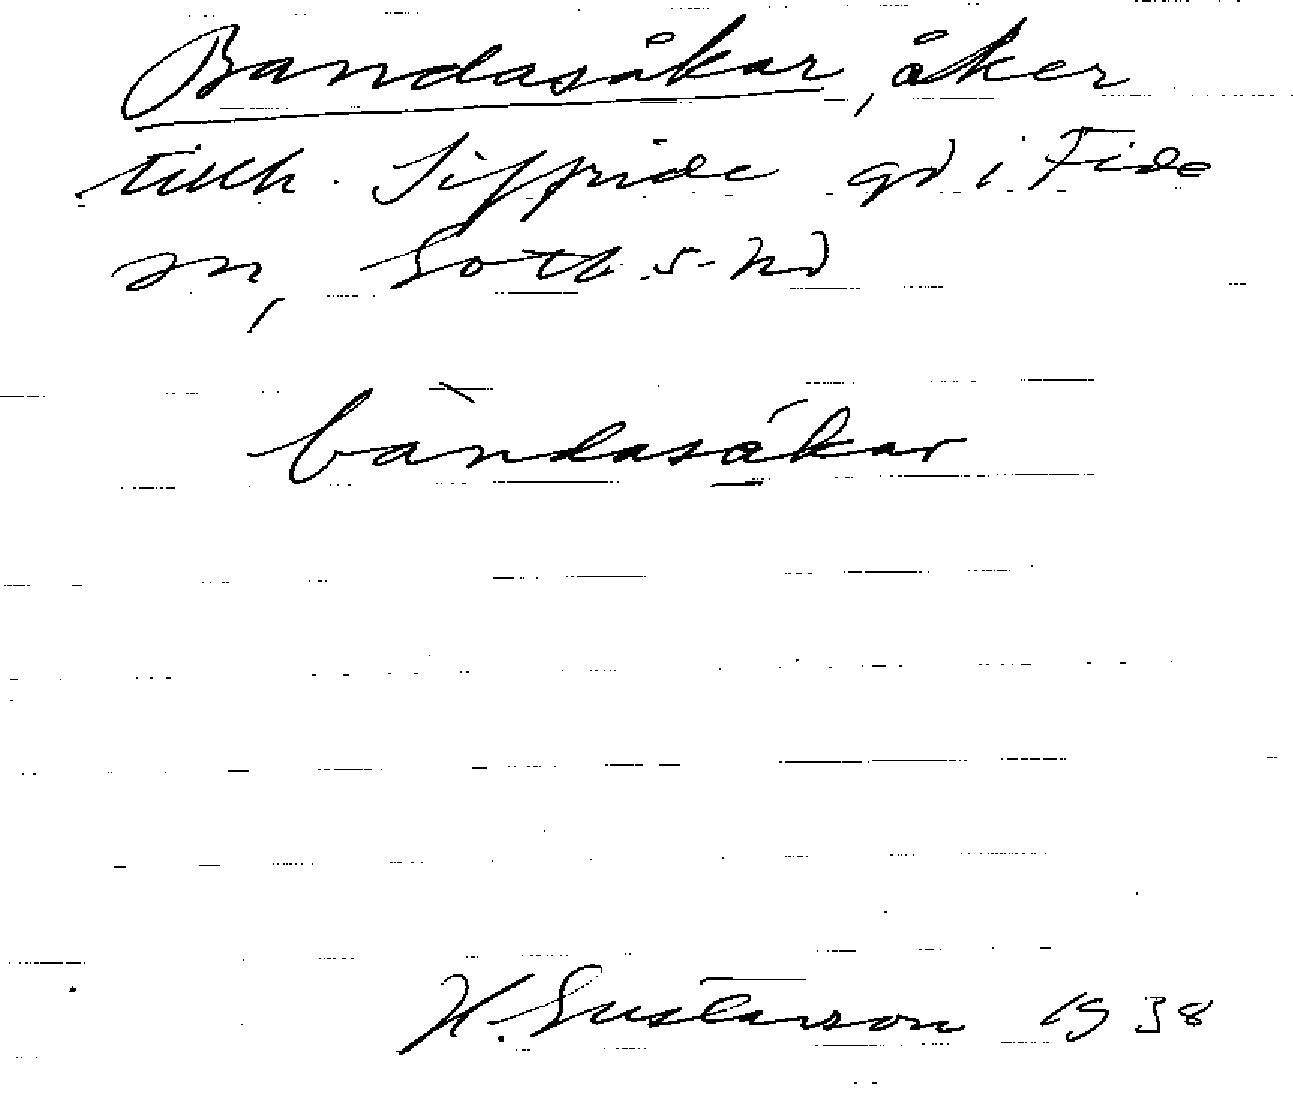 Bandasåkar, åker
tillh. Siffride gd i Fide
sn, Gotl. s. hd
bàndasákar
H. Gustavson 1938